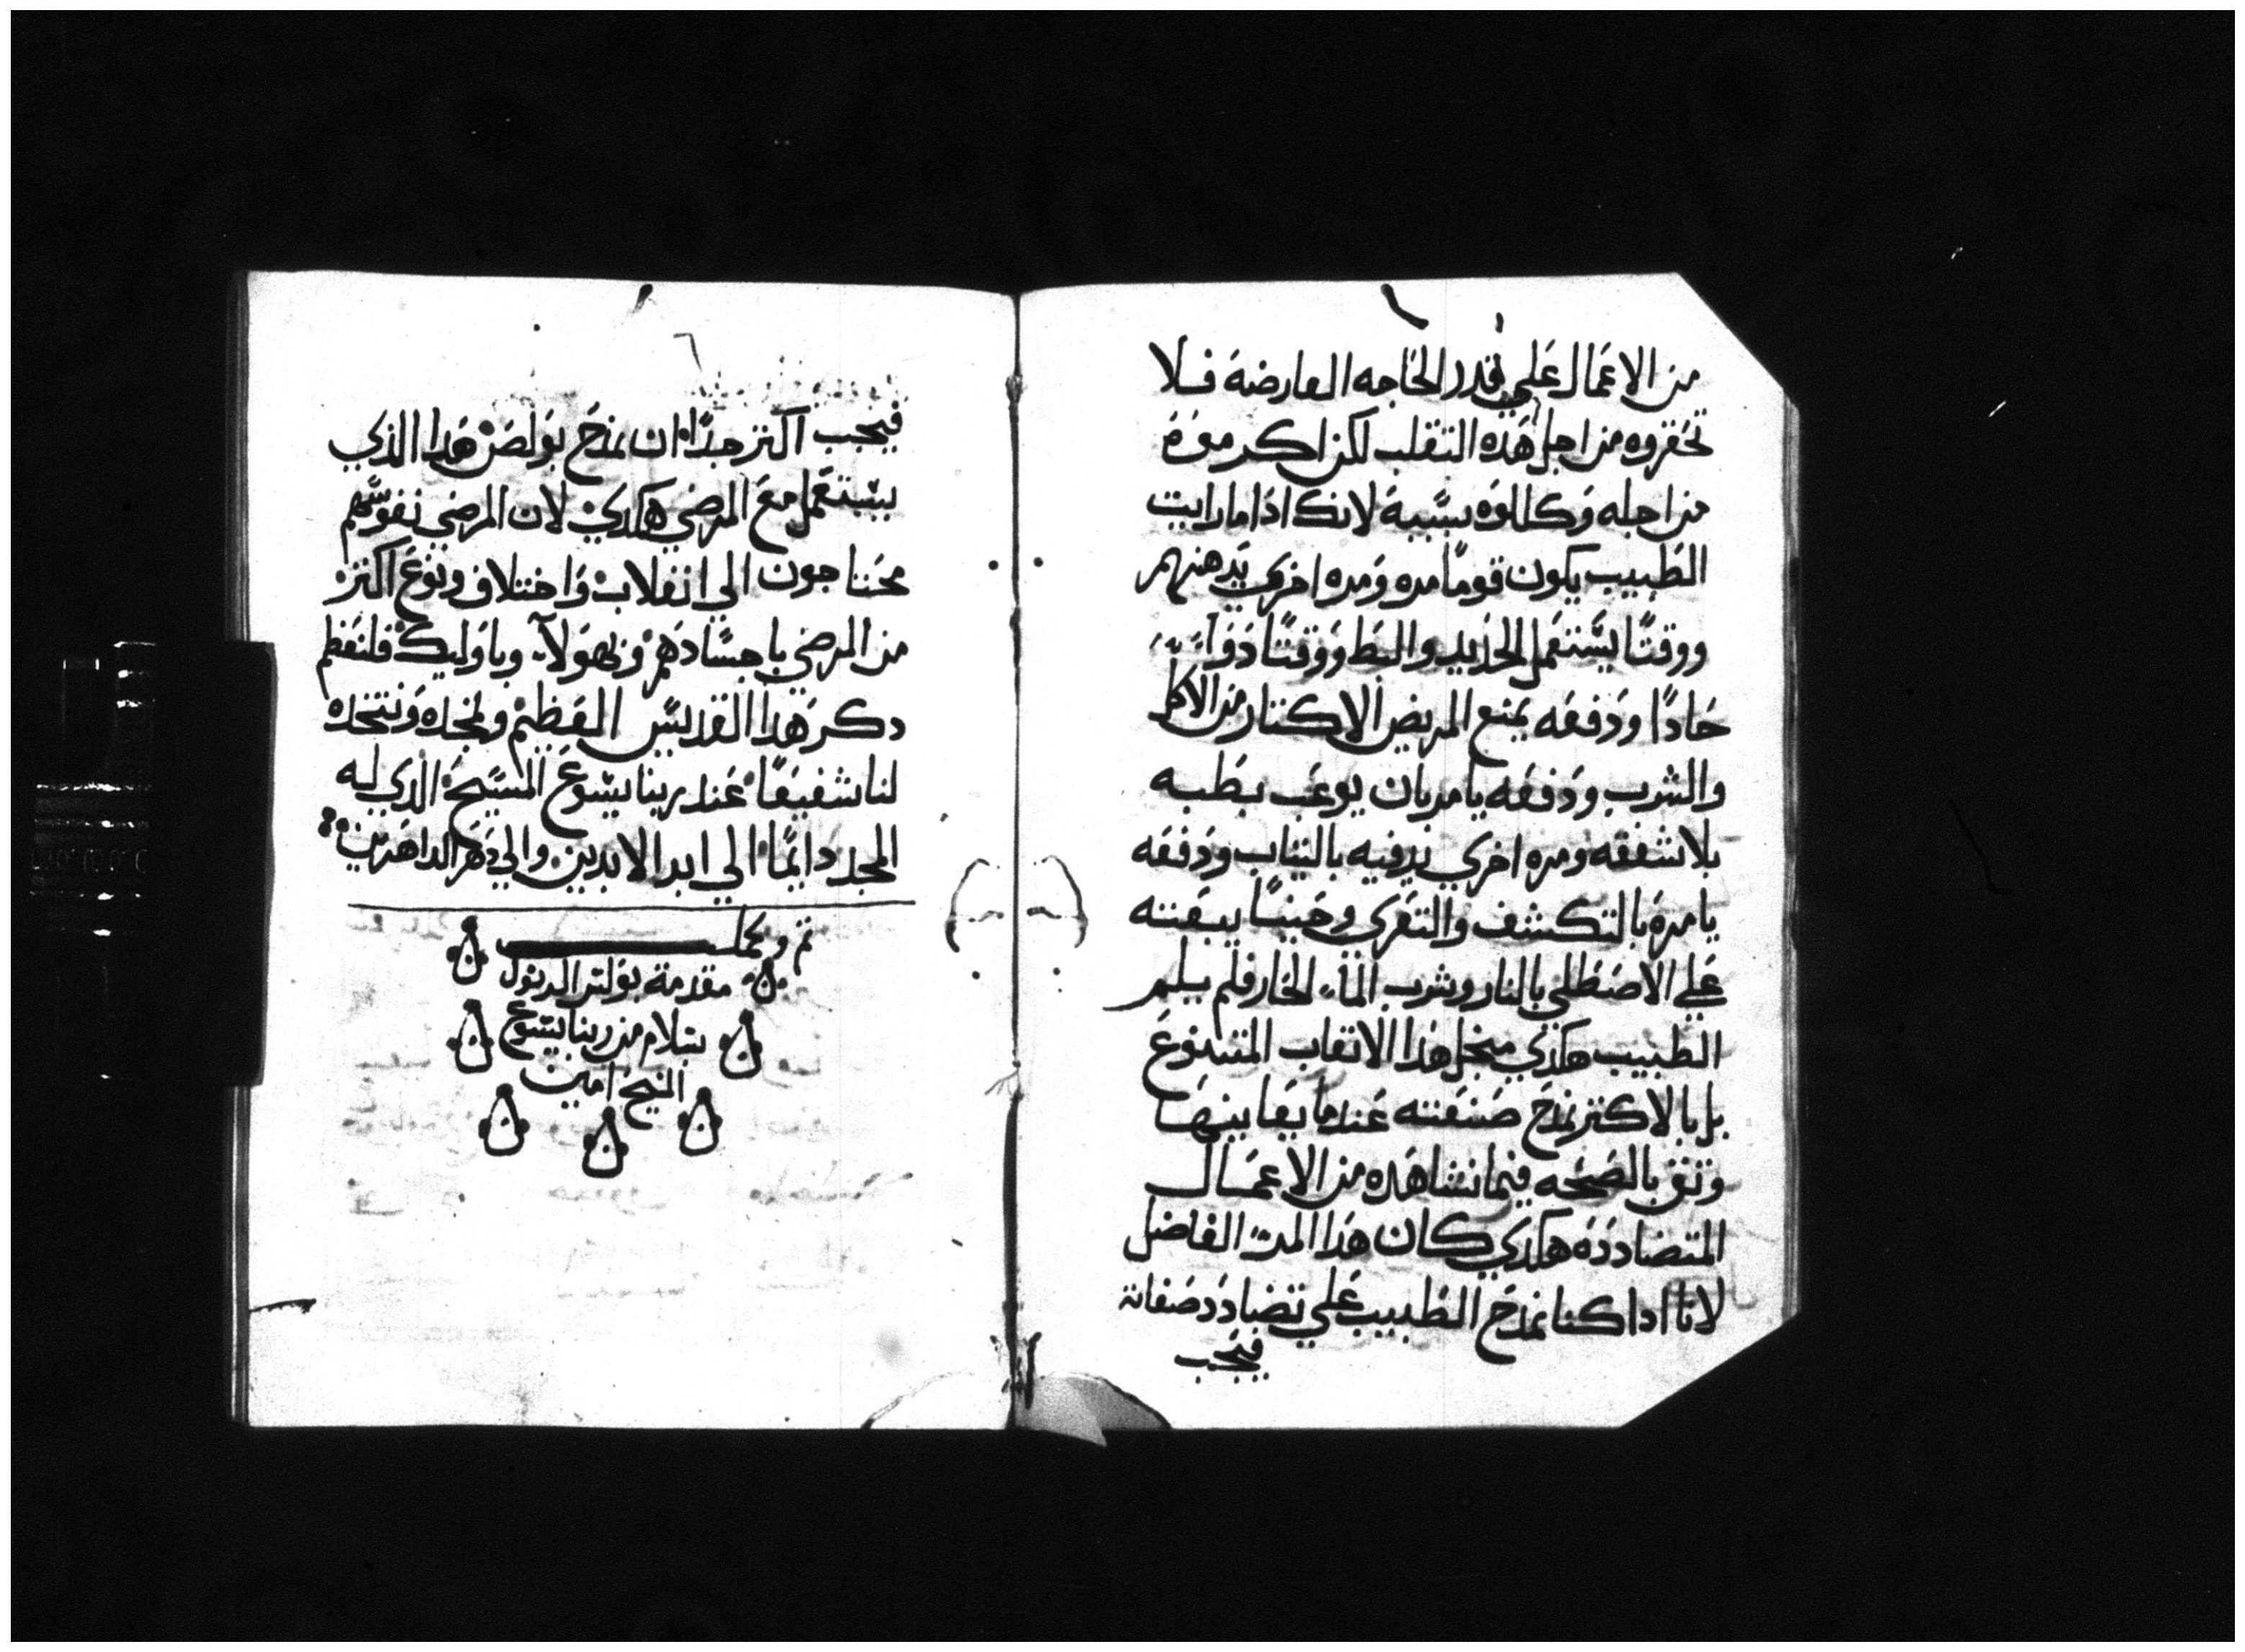 من الاعمال علي قدر الحاجه العارضة فلا
تحقروه من اجل هذه التقلب لكن اكرموة
من اجله وكللوه بسببة لانك اذا ما رايت
الطبيب يكون قوماً مره ومره اخري يدهنهم
ووقتاً يستعمل الحديد والبط ووقتاً دوآء
حاداً ودفعه يمنع المريض الاكتار من الاكل
والشرب ودفعه يامر بان يوعب بطبه
بلا شفقه ومره اخري يدفيه بالتياب ودفعه
يامرة بالتكشف والتعري وحيناً يبعته
علي الاصطلي بالنار وشرب المآء الحار فلم يلم
الطبيب هكدي منجل هدا الانقاب المتنوع
بل بالاكتر نمدح صنعته عندما يعاينها
وتتق بالصحه فيما نشاهده من الاعمال
المتضاددة هكدي كان هدا المرء الفاضل
لاننا ادا كنا نمدح الطبيب علي تضادد صفاته
فيجب
٦
فيجب اكتر جداً ان نمدح بولص هدا الذي
يستعمل مع المرضي هكدي لان المرضي نفوسهم
محتاجون الي انقلاب واختلاف ونوع اكتر
من المرضي باجسادهم وبهولآء وباوليك فلنعظم
دكر هدا القديس العظيم ونمجده ونتخده
لنا شفيعاً عند ربنا يسوع المسيح الذي له
المجد دايماً الي ابد الابدين والي دهر الداهرين
تم وكمل
مقدمة بولس الرسول
بسلام من ربنا يسوع
المسيح امين